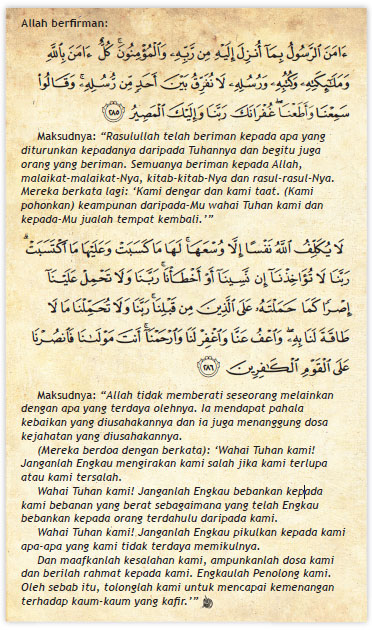 Allah berfirman:
ءَامَنَ ٱلرَّسُولُ بِمَآ أُنزِلَ إِلَيْهِ مِن رَّبِّهِۦ وَٱلْمُؤْمِنُونَ ۚ كُلٌّ ءَامَنَ بِٱللَّهِ
وَمَلَـٰٓئِكَتِهِۦ وَكُتُبِهِۦ وَرُسُلِهِۦ لَا نُفَرِّقُ بَيْنَ أَحَدٍ مِّن رُّسُلِهِۦ ۚ وَقَالُوا۟
سَمِعْنَا وَأَطَعْنَا ۖ غُفْرَانَكَ رَبَّنَا وَإِلَيْكَ ٱلْمَصِيرُ ٢٨٥
Maksudnya: “Rasulullah telah beriman kepada apa yang
diturunkan kepadanya daripada Tuhannya dan begitu juga
orang yang beriman. Semuanya beriman kepada Allah,
malaikat-malaikat-Nya, kitab-kitab-Nya dan rasul-rasul-Nya.
Mereka berkata lagi: ‘Kami dengar dan kami taat. (Kami
pohonkan) keampunan daripada-Mu wahai Tuhan kami dan
kepada-Mu jualah tempat kembali.’”
لَا يُكَلِّفُ ٱللَّهُ نَفْسًا إِلَّا وُسْعَهَا ۚ لَهَا مَا كَسَبَتْ وَعَلَيْهَا مَا ٱكْتَسَبَتْ ۗ
رَبَّنَا لَا تُؤَاخِذْنَآ إِن نَّسِينَآ أَوْ أَخْطَأْنَا ۚ رَبَّنَا وَلَا تَحْمِلْ عَلَيْنَآ
إِصْرًا كَمَا حَمَلْتَهُۥ عَلَى ٱلَّذِينَ مِن قَبْلِنَا ۚ رَبَّنَا وَلَا تُحَمِّلْنَا مَا لَا
طَاقَةَ لَنَا بِهِۦ ۖ وَٱعْفُ عَنَّا وَٱغْفِرْ لَنَا وَٱرْحَمْنَآ ۚ أَنتَ مَوْلَىٰنَا فَٱنصُرْنَا
عَلَى ٱلْقَوْمِ ٱلْكَـٰفِرِينَ ٢٨٦
Maksudnya: “Allah tidak memberati seseorang melainkan
dengan apa yang terdaya olehnya. Ia mendapat pahala
kebaikan yang diusahakannya dan ia juga menanggung dosa
kejahatan yang diusahakannya.
(Mereka berdoa dengan berkata): ‘Wahai Tuhan kami!
Janganlah Engkau mengirakan kami salah jika kami terlupa
atau kami tersalah.
Wahai Tuhan kami! Janganlah Engkau bebankan kepada
kami bebanan yang berat sebagaimana yang telah Engkau
bebankan kepada orang terdahulu daripada kami.
Wahai Tuhan kami! Janganlah Engkau pikulkan kepada kami
apa-apa yang kami tidak terdaya memikulnya.
Dan maafkanlah kesalahan kami, ampunkanlah dosa kami
dan berilah rahmat kepada kami. Engkaulah Penolong kami.
Oleh sebab itu, tolonglah kami untuk mencapai kemenangan
terhadap kaum-kaum yang kafir.’”